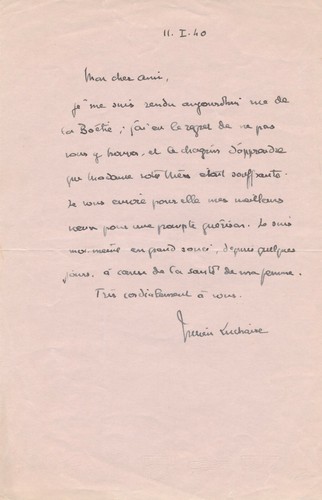 11. I-40
Mon cher ami,
je me suis rendu aujourd'hui rue de
la Boétie ; j'ai eu le regret de ne pas
vous y trouver, et le chagrin d'apprendre
que Madame votre Mère était souffrante.
Je vous envoie pour elle mes meilleurs
vœux pour une prompte guérison. Je suis
moi-même en grand souci, depuis quelques
jours, à cause de la santé de ma femme.
Très cordialement à vous.
Julien Luchaire